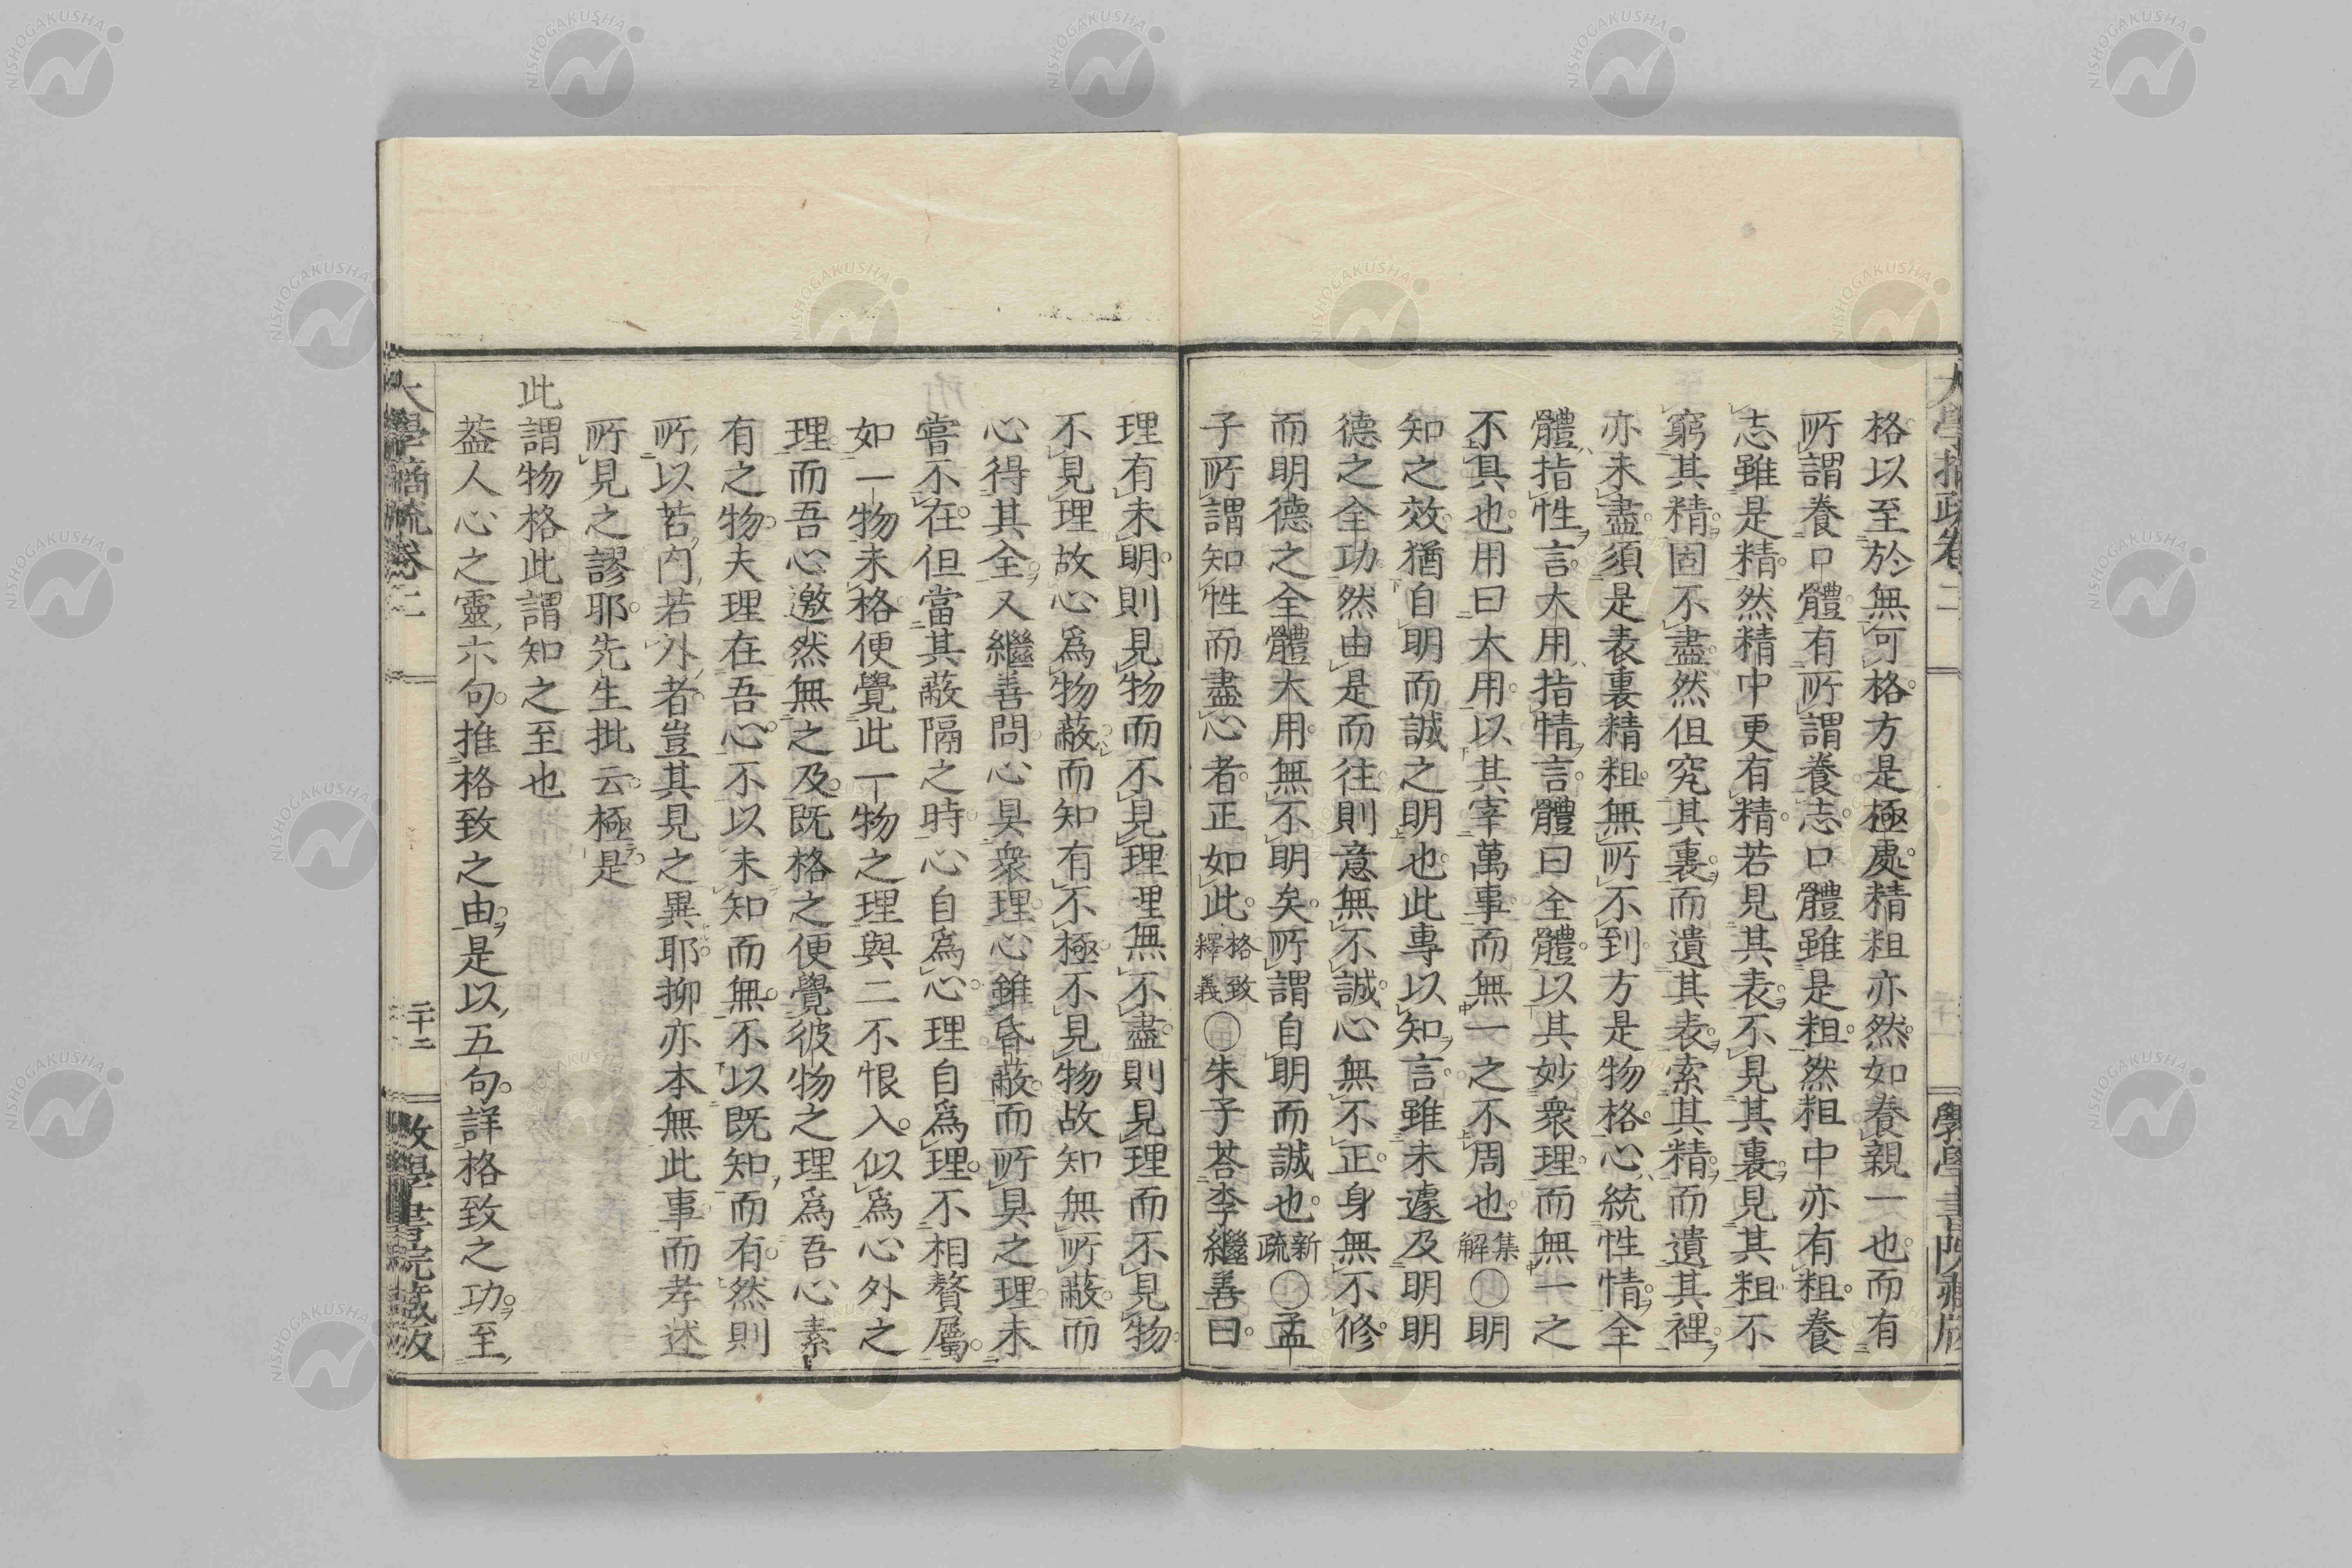 格以至於無可格方是極處精粗亦然如養親一也而有
所謂養口體有所謂養志口體雖是粗然粗中亦有粗養
志雖是精然精中更有精若見其表不見其裏見其粗不
窮其精固不盡然但究其裏而遺其表索其精而遺其裡
亦未盡須是表裏精粗無所不到方是物格心統性情全
體指性言大用指情言體曰全體以其妙衆理而無一之
不具也用曰大用以其宰萬事而無一之不周也集解○明
知之效猶自明而誠之明也此專以知言雖未遽及明明
德之全功然由是而往則意無不誠心無不正身無不修
而明德之全體大用無不明矣所謂自明而誠也新疏○孟
子所謂知性而盡心者正如此格致釋義○朱子荅李繼善曰
理有未明則見物而不見理理無不盡則見理而不見物
不見理故心爲物蔽而知有不極不見物故知無所蔽而
心得其全又繼善問心具衆理心雖昏蔽而所具之理未
嘗不在但當其蔽隔之時心自爲心理自爲理不相贅屬
如一物未格便覺此一物之理與二不恨入似爲心外之
理而吾心邈然無之及既格之便覺彼物之理爲吾心素
有之物夫理在吾心不以未知而無不以既知而有然則
所以若内若外者豈其見之異耶抑亦本無此事而孝述
所見之謬耶先生批云極是
此謂物格此謂知之至也
葢人心之靈六句推格致之由是以五句詳格致之功至
大學摘疏卷二
二十二
斅學書院藏版
NISHOGAKUSHA